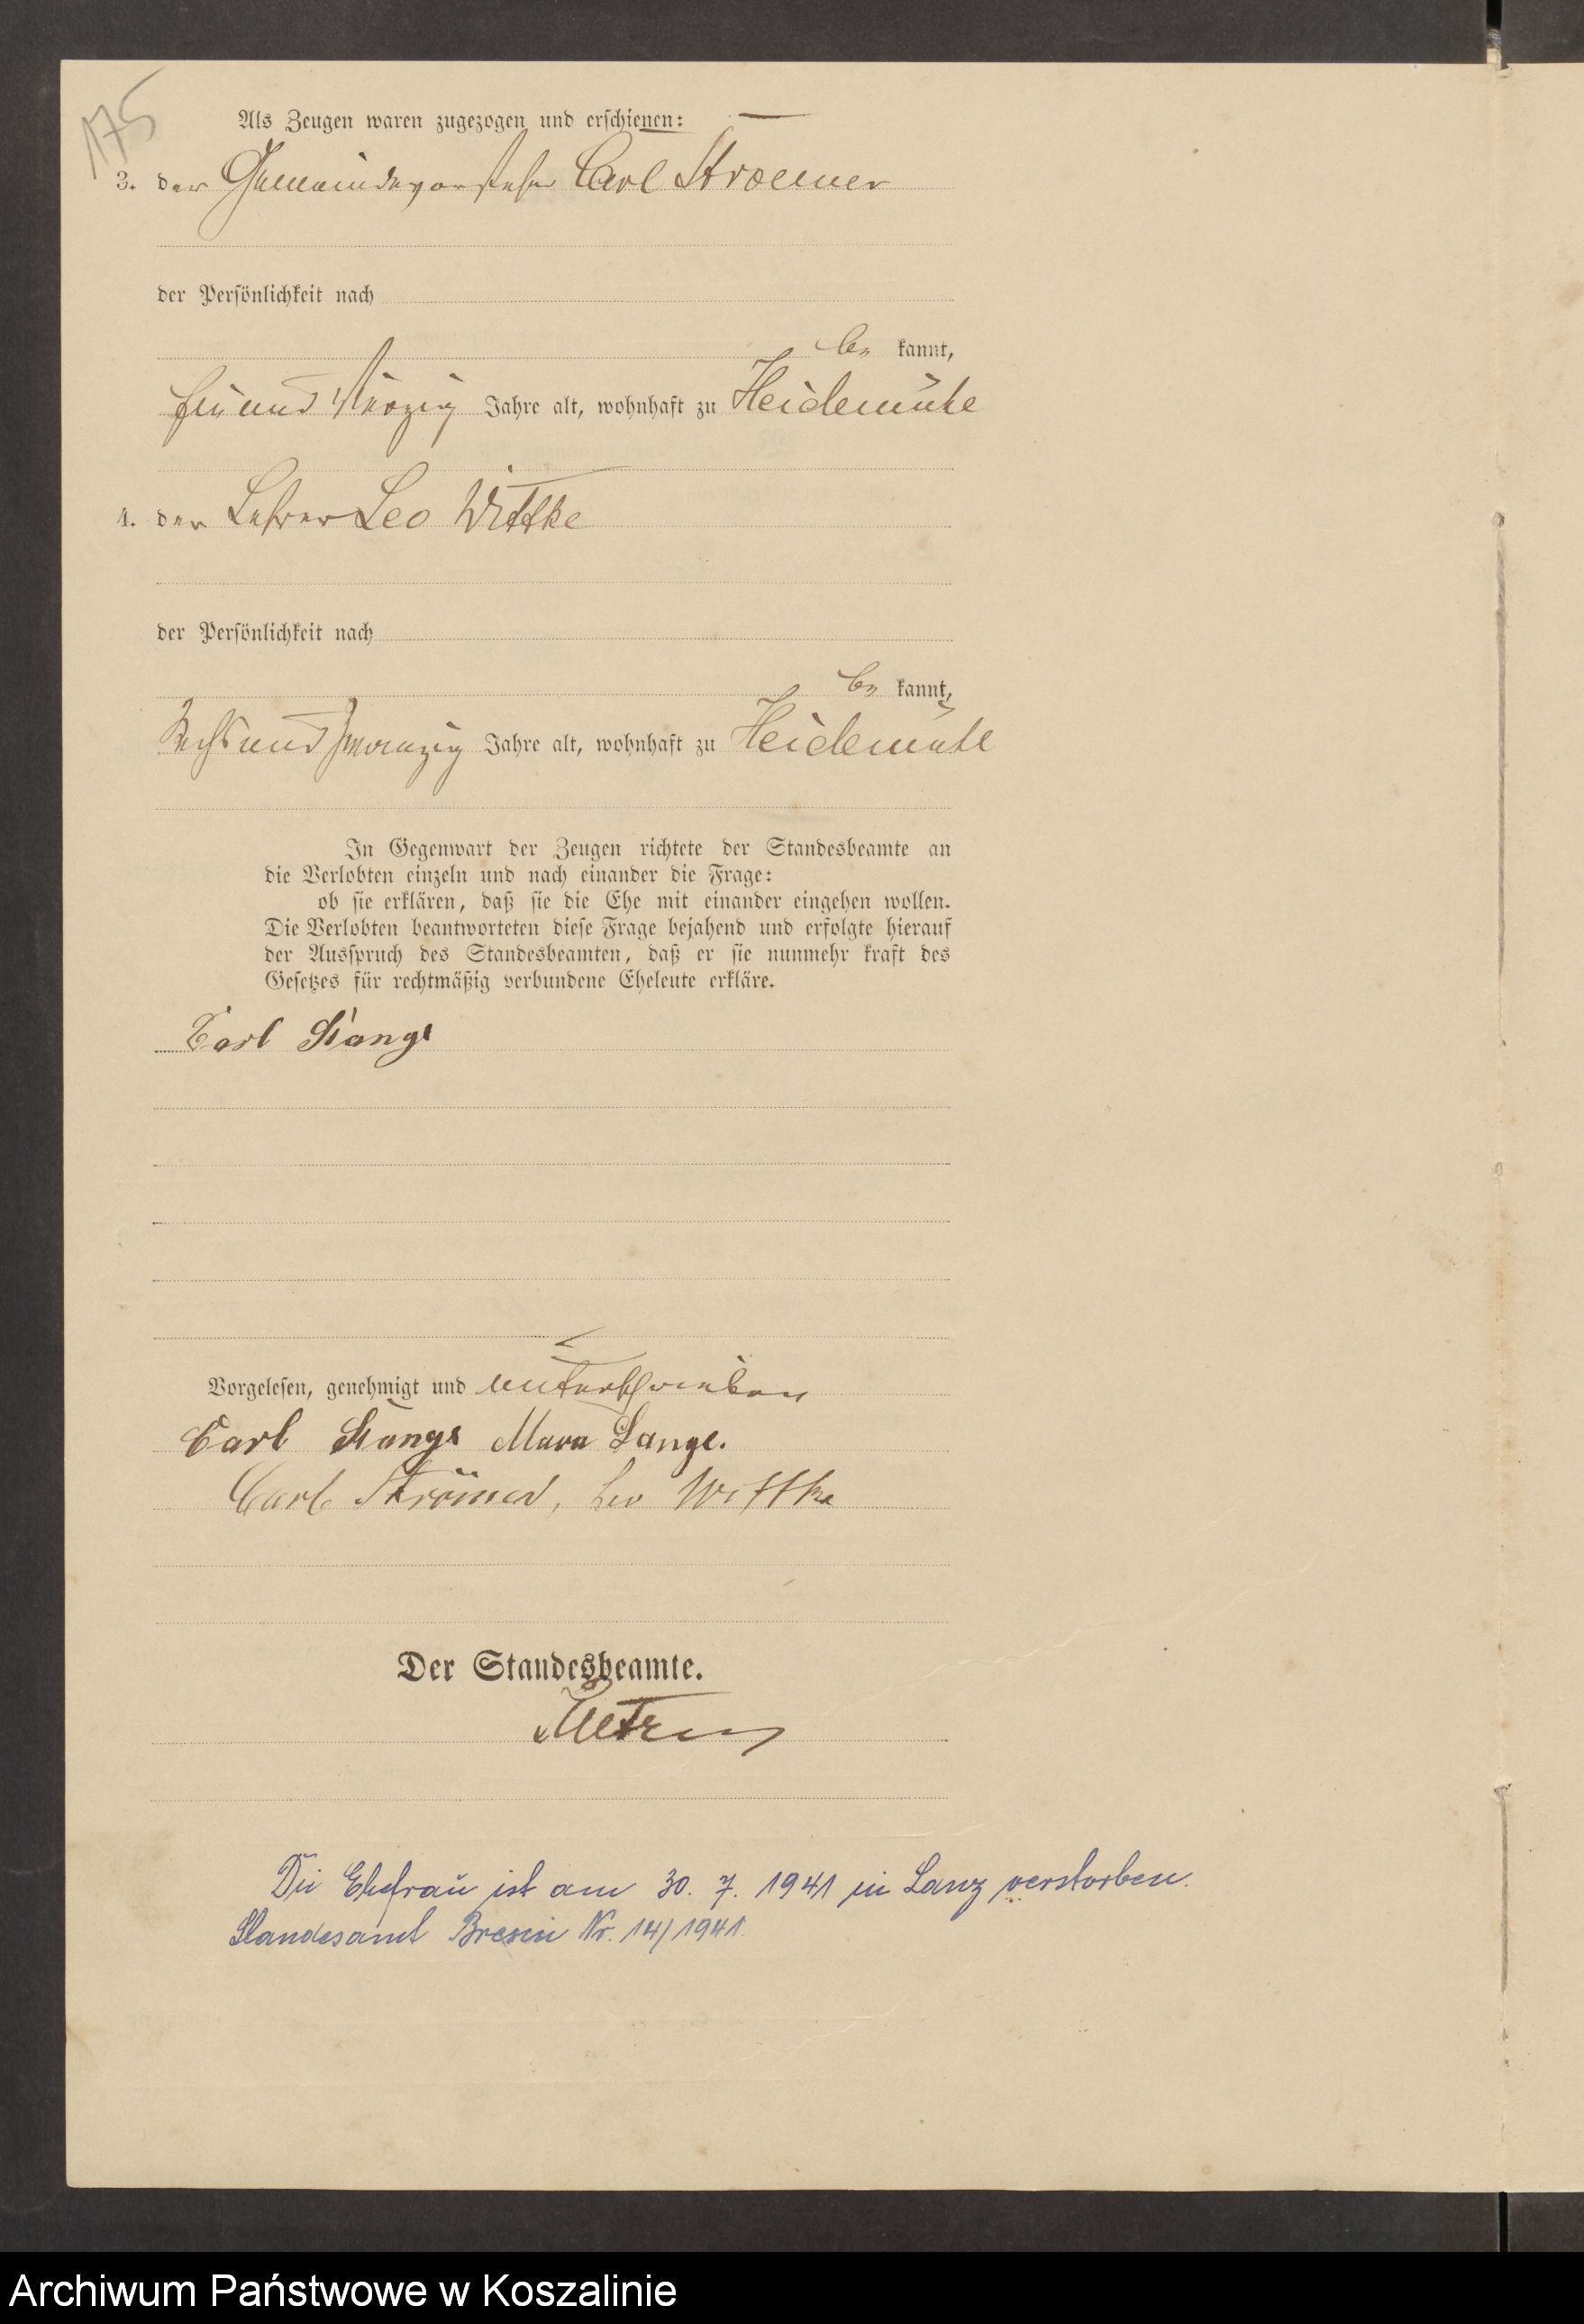 175
Als Zeugen waren zugezogen und erschienen:
3. der Gemeindevorsteher Carl Stroemer
der Persönlichkeit nach
be kannt,
und vierzig Jahre alt, wohnhaft zu Heidemühle
4. der Lehrer Leo Wittke
der Persönlichkeit nach
be kannt,
sechsundzwanzig Jahre alt, wohnhaft zu Heidemühl
In Gegenwart der Zeugen richtete der Standesbeamte an
die Verlobten einzeln und nach einander die Frage:
ob sie erklären, daß sie die Ehe mit einander eingehen wollen.
Die Verlobten beantworteten diese Frage bejahend und erfolgte hierauf
der Ausspruch des Standesbeamten, daß er sie nunmehr kraft des
Gesetzes für rechtmäßig verbundene Eheleute erkläre.
Carl Stange
Vorgelesen, genehmigt und unterschrieben
Carl Stange Lange.
Carl Strömer, Leo Wittke
Der Standesbeamte.
Die Ehefrau ist am 30. 7. 1941 in Lanz verstorben.
Standesamt Bresin Nr. 14/1941.
Archiwum Państwowe w Koszalinie